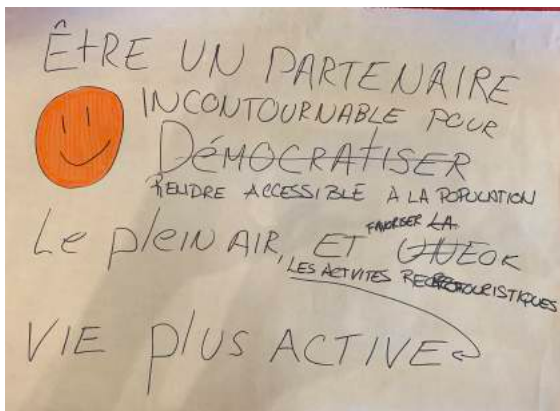 ÊTRE UN PARTENAIRE
INCONTOURNABLE POUR
DéMOCRATISER
RENDRE ACCESSIBLE À LA POPULATION
Le plein AIR, ET FAVORISER LA UNE OK
LES ACTVITES
VIE plus ACTIVE